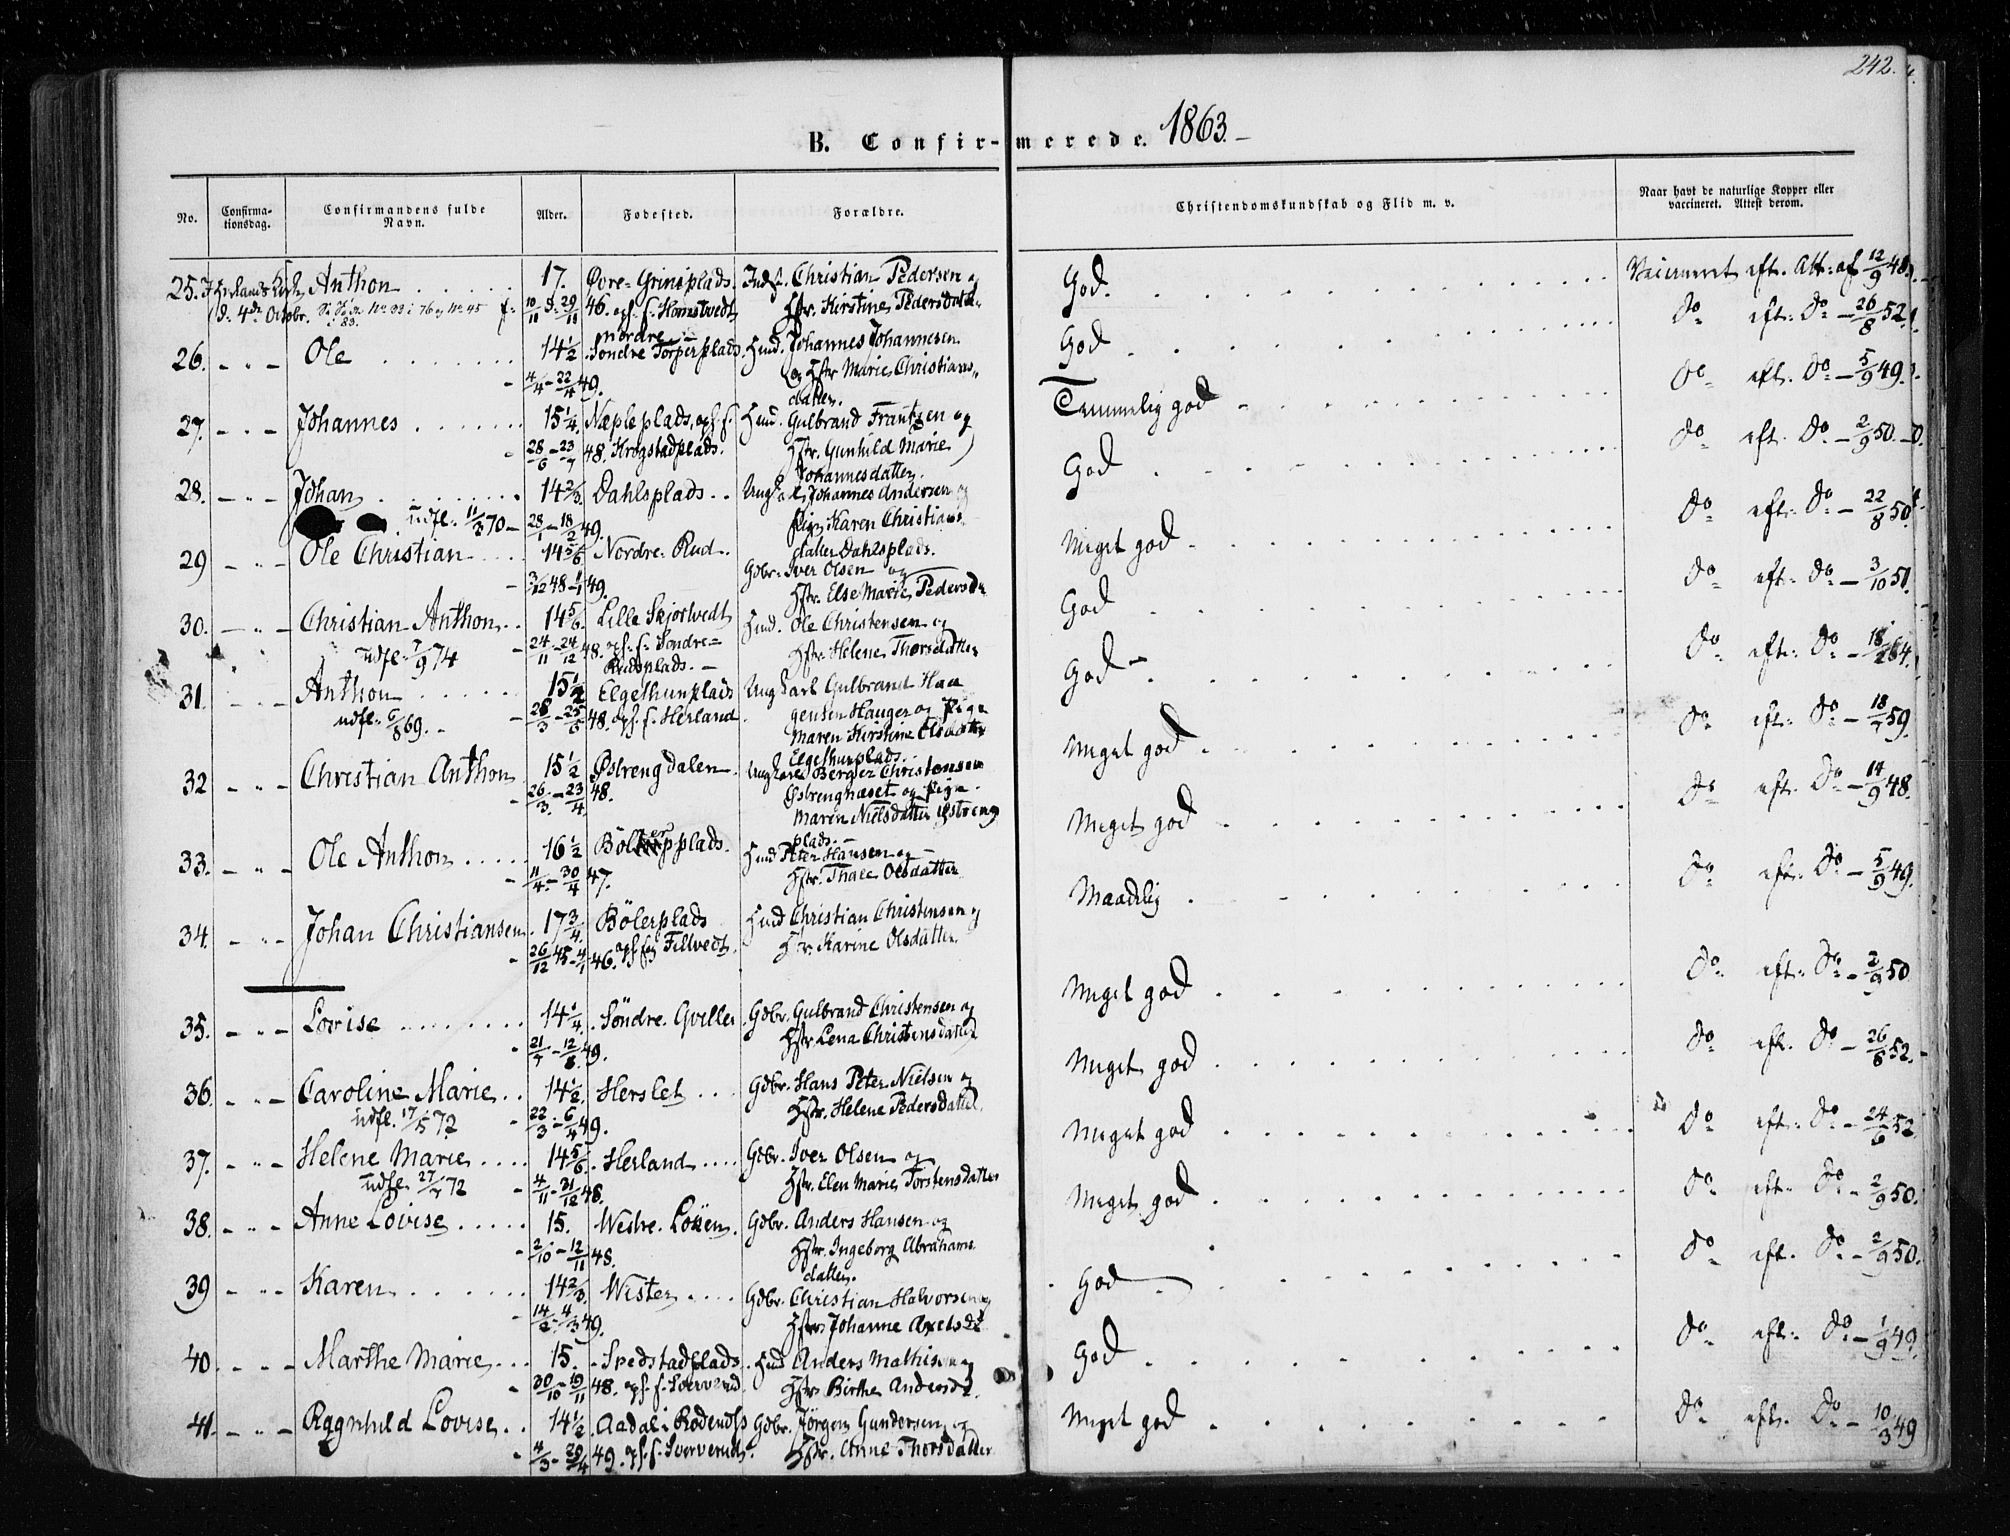 242.
B. Confirmerede. 1863.
No. Confirmationsdag. Confirmandens fulde Navn. Alder. Fødested. Forældre. Christendomskundskab og Flid m. v. Naar havt de naturlige Kopper eller vaccineret. Attest derom.
25. Anthon 17. Øvre Grinisplads. Indst. Christian Pedersen og God. Vaccineret eft. Att: af 12/9 48.
d. 4de Octobr. 10/11 - 29/11 46. opf. f. Homstvedt nordre Hstr. Kirstine Pedersdatt.
26. Ole 14 1/2 Söndre Torperplads. Huusm. Johannes Johannesen God do eft: do - 26/8 52.
4/4 - 22/4 49. og Hstr Marie Christians-
datter.
27. Johannes 15 1/4 Næpleplads, opf. f. Huusm. Gulbrand Frantzen og Temmelig god do eft. do - 5/9 49.
28/6 - 23/7 48. Krogstadplads. Hstr. Gunhild Marie
Johannesdatter.
28. Johan 14 2/3 Dahlsplads Ungkarl Johannes Andersen og God do eft. do - 2/9 50.
udfl. 11/3 70 28/1 - 18/2 49. Pige Karen Christians
datter Dahlsplads.
29 Ole Christian 14 5/6 Nordre Rud. Gdbr. Iver Olsen og Meget god do eft. do - 22/8 50.
3/12 48 - 1/1 49. Hstr. Else Marie Pedersd.
30. Christian Anthon 14 5/6 Lille Skjortvedt Huusm. Ole Christensen og God do eft: do - 3/10 51.
udfl. 7/9 74 24/11 - 24/12 48. opf. f. Söndre Hstr. Helene Thorsdatter
Rudsplads.
31. Anthon 15 1/2 Elgethunplads Ungkarl Gulbrand Haa God do eft: do
udfl. 6/8 69. 28/3 - 25/5 48. opf. f. Herland. gensen Hauger og Pige
Maren Kirstine Olsdatter
Elgethunplads.
32 Christian Anthon 15 1/2 Østrengdalen. Ungkarl Berger Christensen Meget god do eft: do - 18/7 59.
26/3 - 23/4 48. Østrengnæset og Pige
Maren Nielsdatter Østreng
plads.
33. Ole Anthon 16 1/2 Bölerplads. Huusm Peter Hansen og Meget god do eft. do - 14/9 48.
11/4 - 30/4 47. Hstr. Thale Olsdatter
34. Johan Christiansen 17 3/4 Bölerplads Huusm Christian Christensen og Maadelig do eft. do - 5/9 49.
26/12 45 - 4/1 46. opf. f. Fillvedt. Hstr. Karine Olsdatter.
35. Lovise 14 1/4 Söndre Qviller Gdbr. Gulbrand Christensen og Meget god do eft. do - 2/9 50
21/7 - 12/8 49. Hstr Lena Christensdatter
36. Caroline Marie 14 1/2 Herslet Gdbr. Hans Peter Nielsen og Meget god do eft. do - 26/8 52.
udfl. 17/5 72 22/3 - 6/4 49. Hstr. Helene Pedersdatter.
37. Helene Marie 14 5/6 Herland Gdbr. Iver Olsen og Meget god do eft: do - 24/6 52
udfl. 27/7 72 4/11 - 31/12 48. Hstr. Elen Marie Torstensdatter
38. Anne Lovise 15. Westre Löken. Gdbr. Anders Hansen og Meget god do eft. do - 2/9 50.
2/10 - 12/11 48. Hstr. Ingeborg Abrahams
datter.
39 Karen 14 2/3 Wister Gdbr. Christian Halvorsen og God do eft. do - 2/9 50.
14/2 - 4/3 49. Hstr Johanne Axelsd.
40. Marthe Marie 15. Spedstadplads Huusm Anders Mathisen og God do eft. do - 1/9 49.
30/10 - 19/11 48. opf. f. Sververud. Hstr. Birthe Andersd.
41. Ragnhild Lovise 14 1/2 Aadal i Rödenæss Gdbr. Jörgen Gundersen og Meget god do eft. do - 10/3 49
4/3 - 29/4 49. opf. f. Sververud. Hstr. Anne Thorsdatter